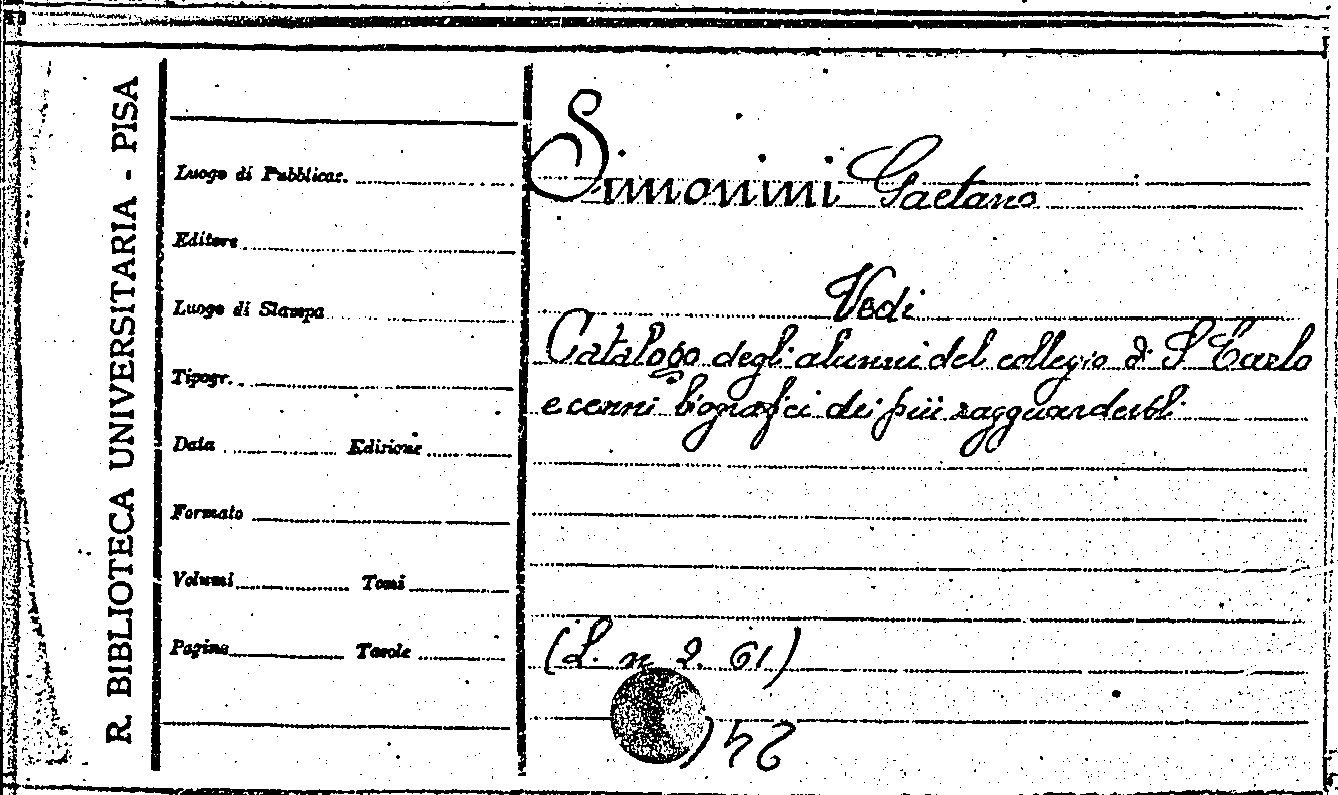 R. BIBLIOTECA UNIVERSITARIA - PISA
Luogo di Pubblicaz.
Editore
Luogo di Stampa
Tipogr.
Data Edizione
Formato
Volumi Tomi
Pagine Tavole
Simonini Gaetano
Vedi
Catalogo degli alunni del collegio di S Carlo
e cenni biografici dei più ragguardevoli
(L. n 2. 61)